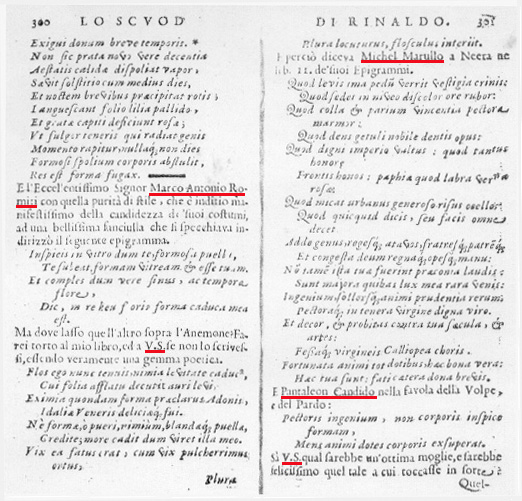 300 LO SCVOD
Exigui donam breve temporis.
Non sic prata novo vere decentia
Aestatis calidæ dispoliat vapor,
Sævit solstitio cum medius dies,
Et noctem brevibus præcipitat rotis;
Languescunt folio lilia pallido,
Et grata capiti deficiunt rosæ;
Vt fulgor teneris qui radiat genis
Momento rapitur, nullaq; non dies
Formosi spolium corporis abstulit,
Res est forma fugax.
E l'Eccellentissimo Signor Marco Antonio Ro-
miti con quella purità di stile, che è inditio ma
nifestissimo della candidezza de'suoi costumi,
ad una bellissima fanciulla che si specchiava in
dirizzò il seguente epigramma.
Inspicis in vitro dum te formosa puella,
Te subeat, formam vitream & esse tuam.
Et comples dum vere sinus, ac tempora
flore,
Dic, in re hen floris forma caduca mea
est.
Ma dove lasso quell'altro sopra l'Anemone? Fa
rei torto al mio libro, ed a V.S. se non lo scrives
si, essendo veramente una gemma poetica.
Flos ego nunc tenuis, nimia levitate caducus,
Cui folia afflatu decutit auri levi.
Eximia quondam forma præclarus Adonis,
Idaliæ Veneris deliciaq; fui.
Ne forma, o pueri, nimium, blandaq; puella,
Credite; more cadit dum viret illa meo.
Vix ea fatus erat, cum vix pulcherrimus
ortus,
Plura
DI RINALDO. 301
Plura locuturus, flosculus, interiit.
E perciò diceva Michel Marullo a Neera ne
lib. 11. de'suoi Epigrammi.
Quod levis ima pedum verrit vestigia crinis:
Quod sedet in niveo discolor ore rubor:
Quod colla & parium vincentia pectora
marmor:
Quod dens getuli nobile dentis opus:
Quod digni imperio vultus: quod tantus
honor
Frontis honos: paphia quod labra
rosæ:
Quod micat urbanus generoso risus ocellos:
Quod quicquid dicis, seu facis omne
decet.
Addo genus, rogesq; atavos, fratresq; patresq;
Et congesta deum regnaq; opesq; manu:
Nō tamē ista tua fuerint præconia laudis:
Sunt mapra quibas lux mea rara venis:
Ingenium sollersq; animi prudentia rerum:
Pectoraq; in tenera virgine digna viro.
Et decor, & probitas contra tua sæcula, &
artes:
Fessaq; virgineis Calliopea choris.
Fortunata animi tot dotibus: hac bona vera:
Hac tua sunt: fati catera dona brevis.
E Pantaleon Candido nella favola della Volpe,
e del Pardo:
Pectoris ingenium, non corporis inspico
formam,
Mens animi dotes corporis exsuperat.
Sì V.S. qual sarebbe un'ottima moglie, e sarebbe
felicissimo quel tale a cui toccasse in sorte è
Quel-